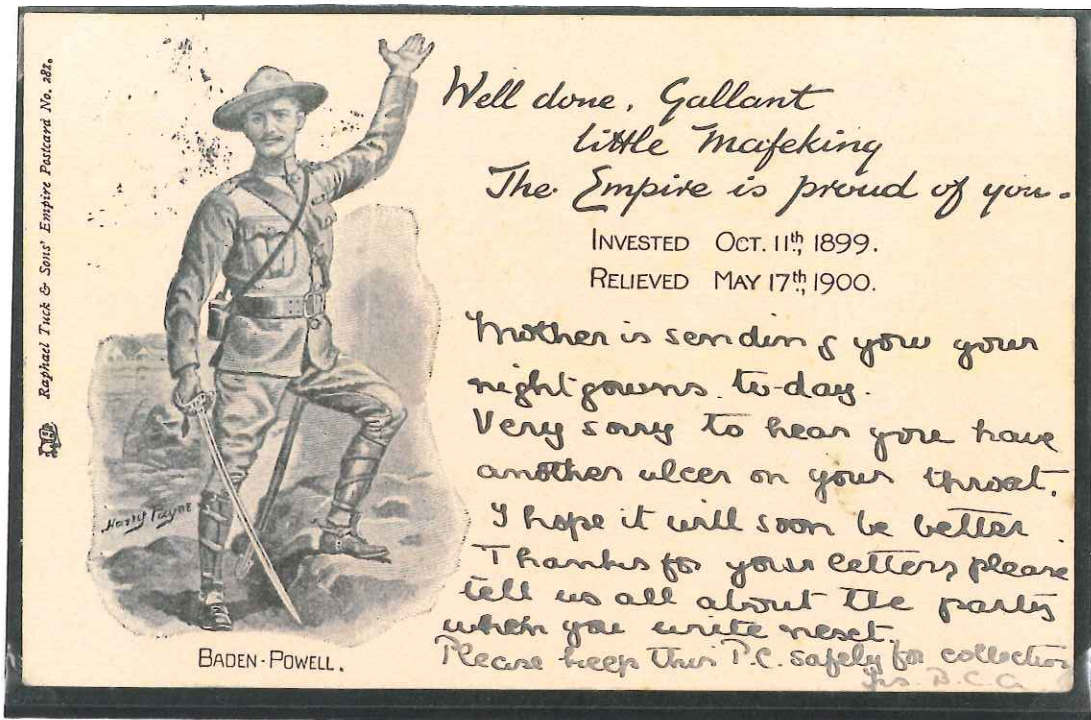 Raphael Tuck & Sons' Empire Postcard No. 282.
Well done, Gallant
little Mafeking
The Empire is proud of you.
INVESTED OCT. 11th, 1899.
RELIEVED MAY 17th, 1900.
Mother is sending you your
nightgowns to-day.
Very sorry to hear you have
another ulcer on your throat.
I hope it will soon be better.
Thanks for your letters please
tell us all about the party
when you write next.
Please keep this P.C. safely for collection
Yrs. B.C.G.
Harry Payne
BADEN-POWELL.